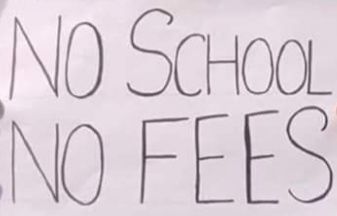 NO SCHOOL
NO FEES